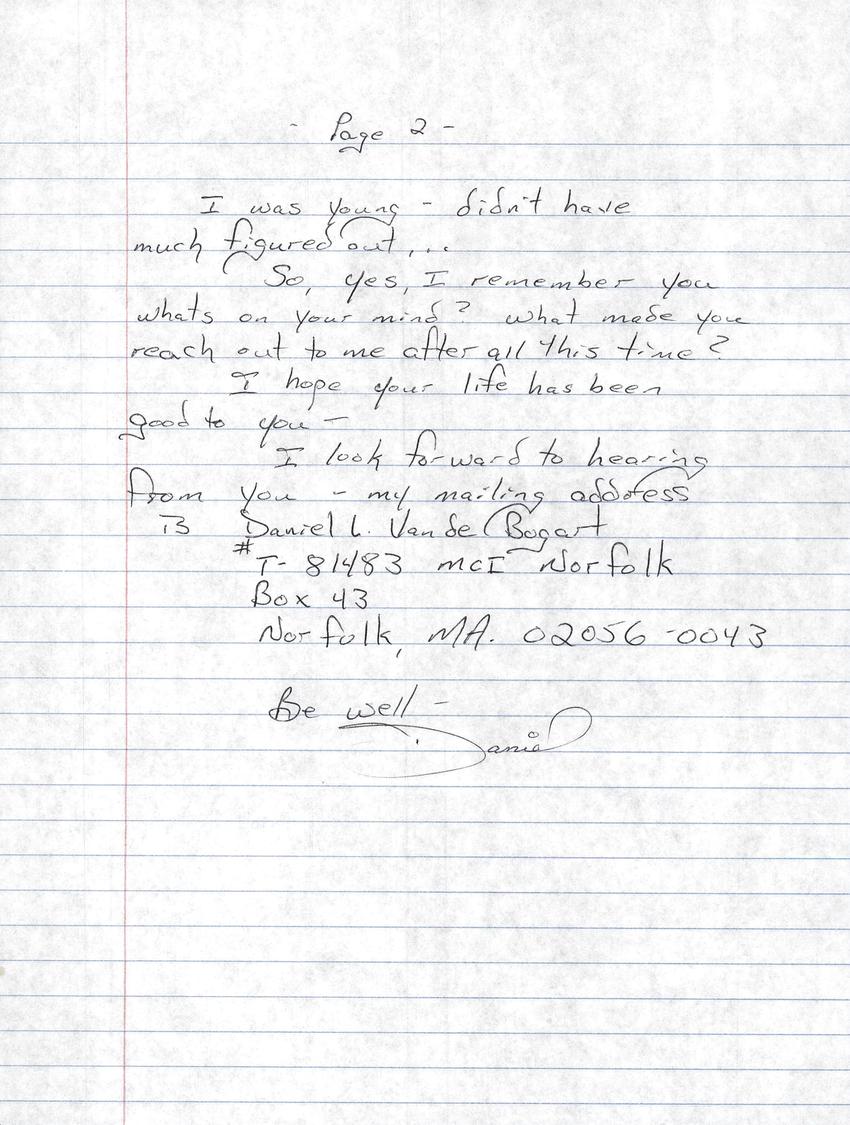 - Page 2 -
I was young - didn't have
much figured out,...
So, yes, I remember you
whats on your mind? what made you
reach out to me after all this time?
I hope your life has been
good to you -
I look forward to hearing
from you - my mailing address
is Daniel L. Van de Bogart
# T- 81483 MCI Norfolk
Box 43
Norfolk, MA. 02056-0043
Be well -
Daniel